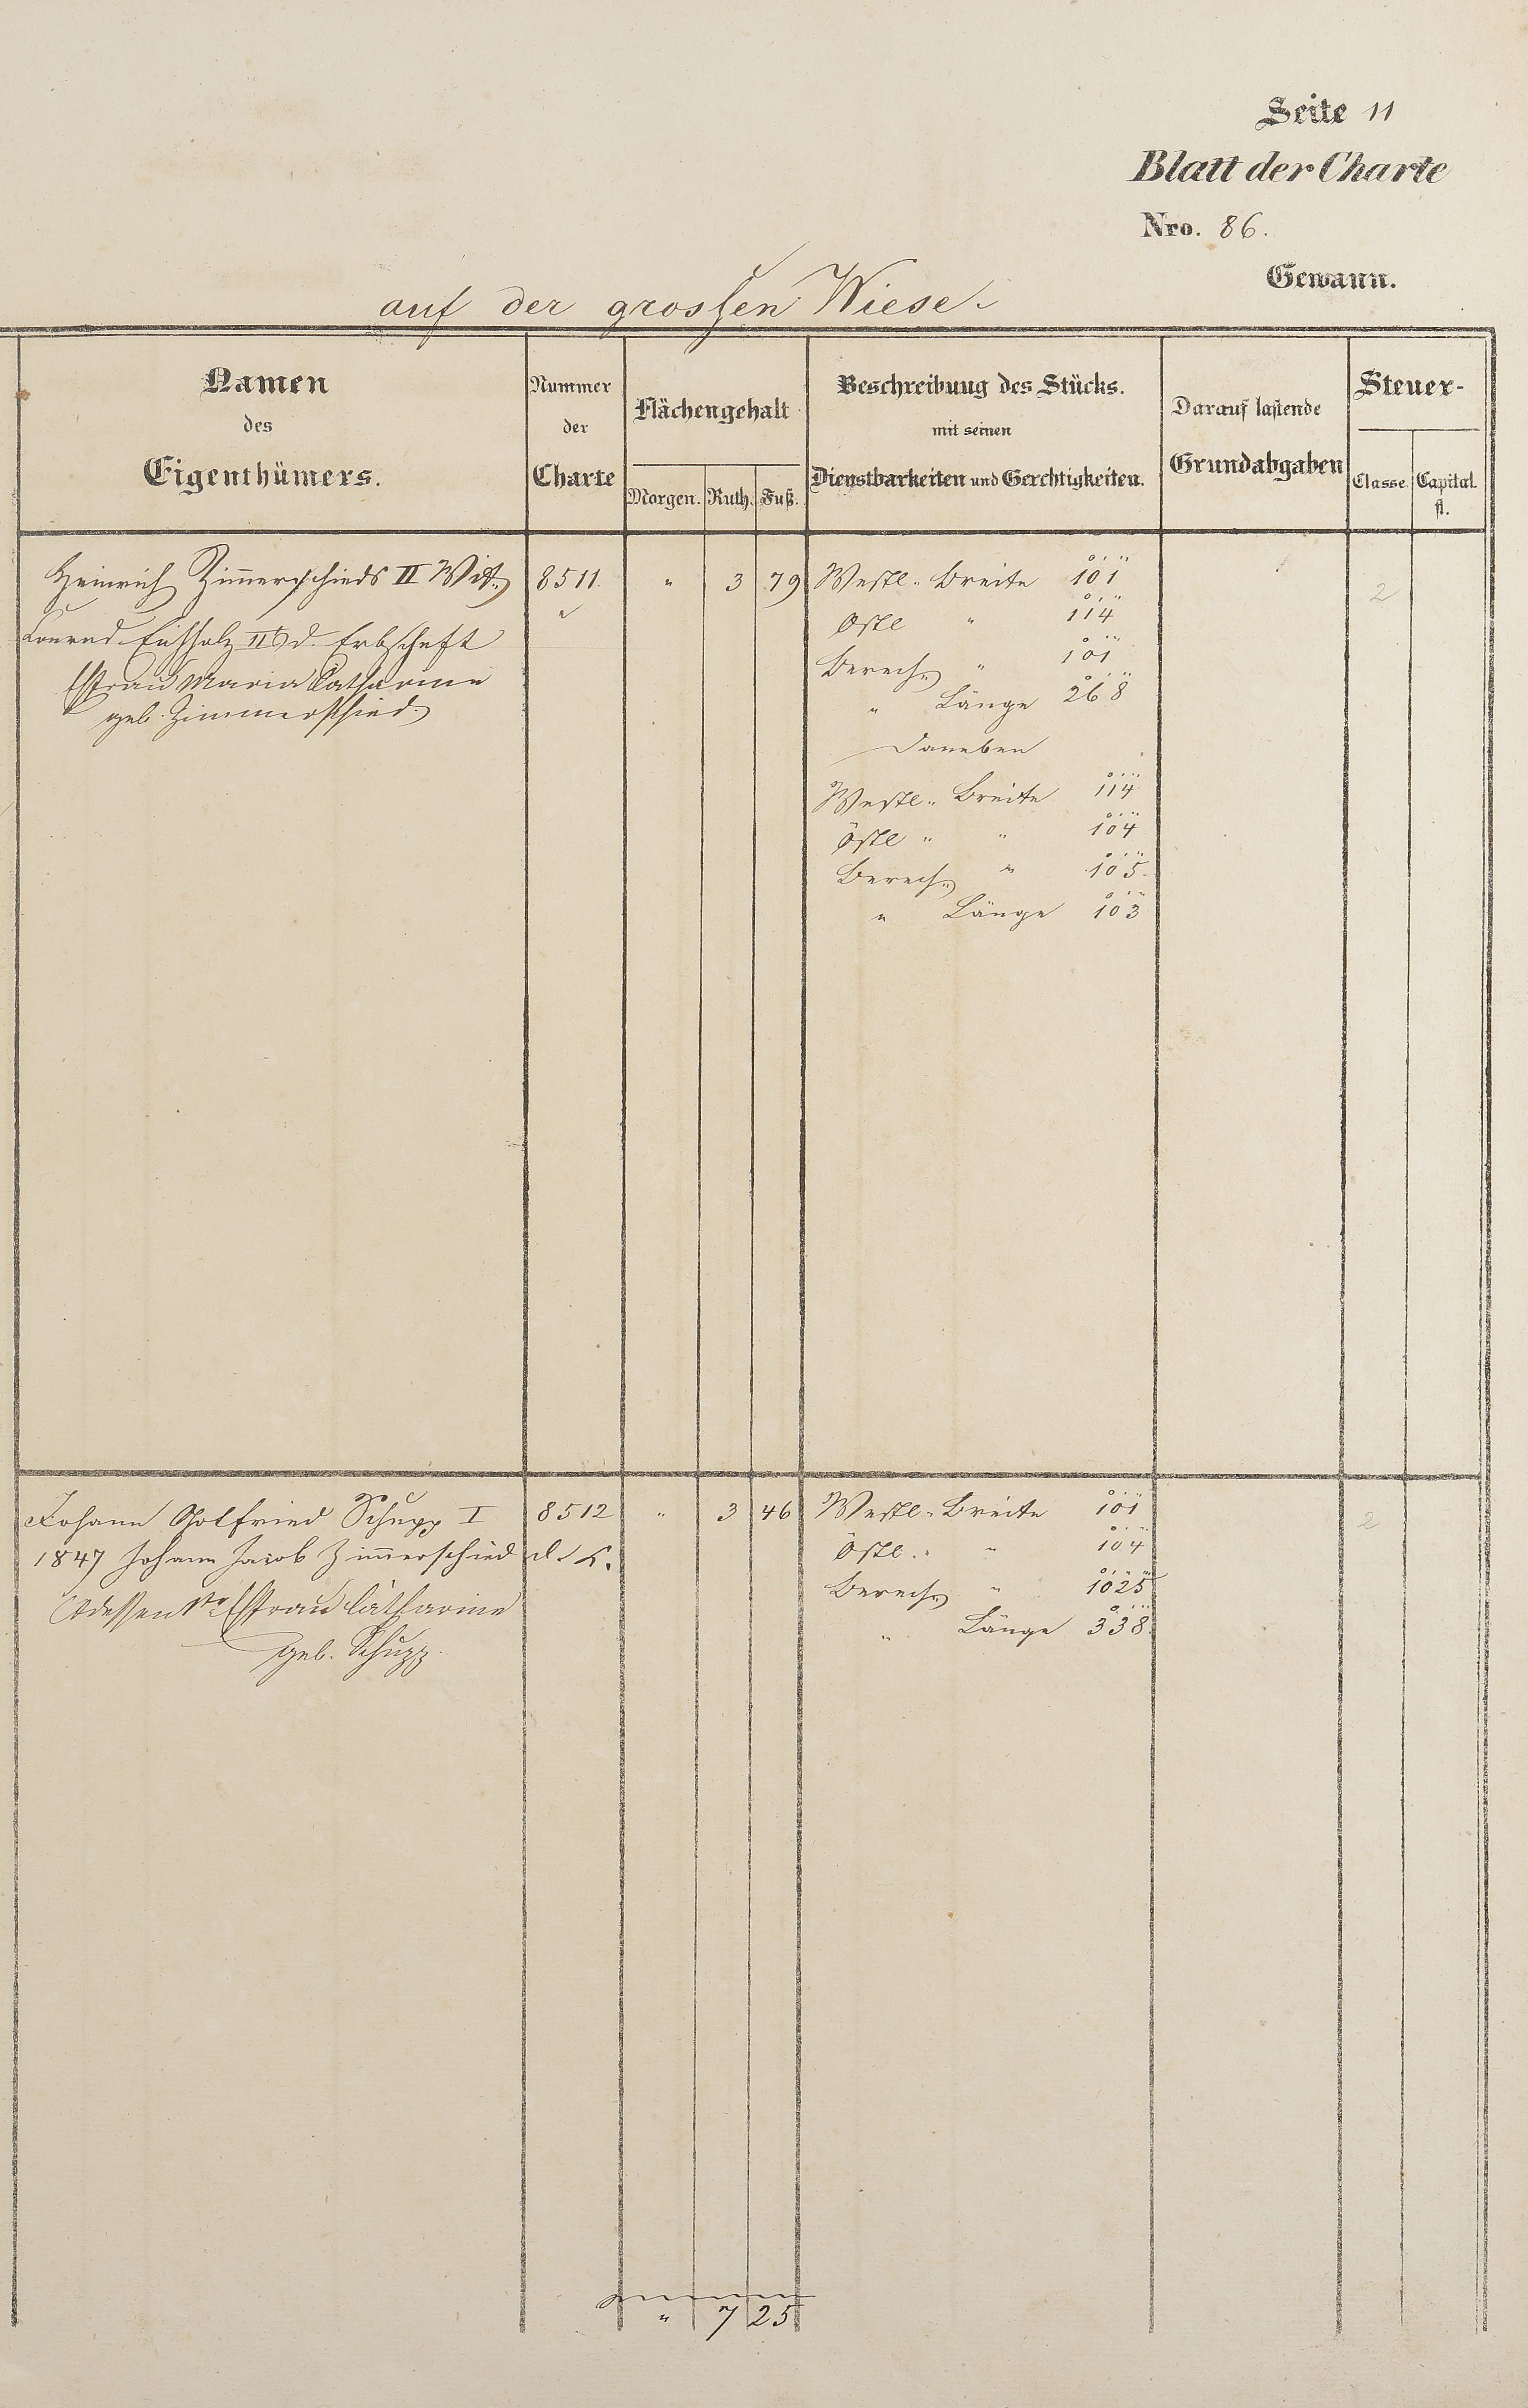 Seite 11
Blatt der Charte
Nro. 86.
Gewann.
auf der grossen Wiese.
Namen
des
Eigenthümers.
Nummer
der
Charte
Flächengehalt
Morgen. Ruth. Fuß.
Beschreibung des Stücks.
mit seinen
Dienstbarkeiten und Gerechtigkeiten.
Darauf lastende
Grundabgaben
Steuer-
Classe. Capital.
fl.
Heinrich Zimmerschieds II Wit. 8511. " 3 79 Westl. Breite 101 2
Östl " 114
Conrad Eichholz II d. Erbschaft
Berech. " 101
Ehfrau Maria Catharine
" Länge 268
geb. Zimmerschied.
Daneben
Westl. Breite 114
Östl " " 104
Berech. " 105
" Länge 103
Johann Gotfried Schupp I 8512 " 3 46 Westl. Breite 101 2
1847 Johann Jacob Zimmerschied d. K. Östl. " 104
dessen Ehfrau Catharine Berech. " 1025
geb. Schupp. " Länge 338.
" 7 25